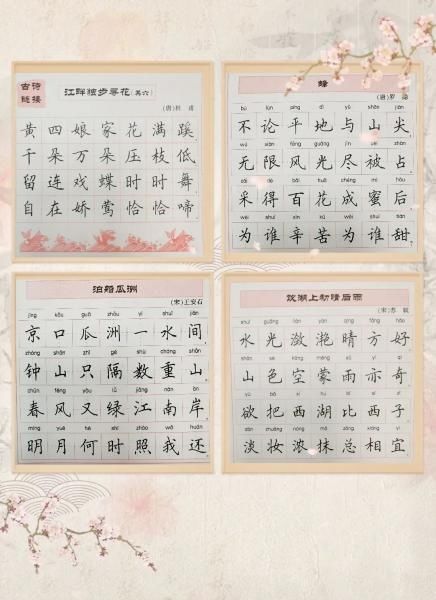 古诗链接
江畔独步寻花(其六)
(唐)杜甫
黄四娘家花满蹊
千朵万朵压枝低
留连戏蝶时时舞
自在娇莺恰恰啼
蜂
(唐)罗隐
bù lùn píng dì yǔ shān jiān
不论平地与山尖
wú xiàn fēng guāng jìn bèi zhàn
无限风光尽被占
cǎi dé bǎi huā chéng mì hòu
采得百花成蜜后
wèi shuí xīn kǔ wèi shuí tián
为谁辛苦为谁甜
泊船瓜洲
(宋)王安石
jīng kǒu guā zhōu yì shuǐ jiān
京口瓜洲一水间
zhōng shān zhǐ gé shù chóng shān
钟山只隔数重山
chūn fēng yòu lǜ jiāng nán àn
春风又绿江南岸
míng yuè hé shí zhào wǒ huán
明月何时照我还
饮湖上初晴后雨
(宋)苏轼
shuǐ guāng liàn yàn qíng fāng hǎo
水光潋滟晴方好
shān sè kōng méng yǔ yì qí
山色空蒙雨亦奇
yù bǎ xī hú bǐ xī zǐ
欲把西湖比西子
dàn zhuāng nóng mǒ zǒng xiāng yí
淡妆浓抹总相宜